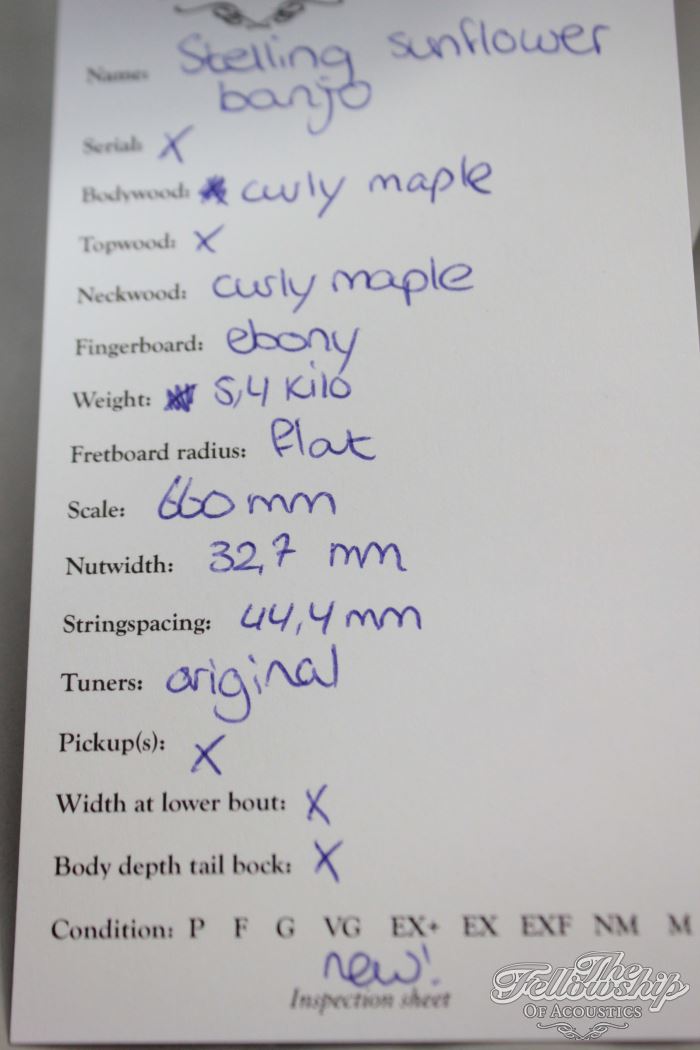 Name: Stelling sunflower
banjo
Serial: X
Bodywood: curly maple
Topwood: X
Neckwood: curly maple
Fingerboard: ebony
Weight: 5,4 Kilo
Fretboard radius: flat
Scale: 660 mm
Nutwidth: 32,7 mm
Stringspacing: 44,4 mm
Tuners: original
Pickup(s): X
Width at lower bout: X
Body depth tail bock: X
Condition: P F G VG EX+ EX EXF NM M
new!
Inspection sheet
The
Fellowship
OF ACOUSTICS